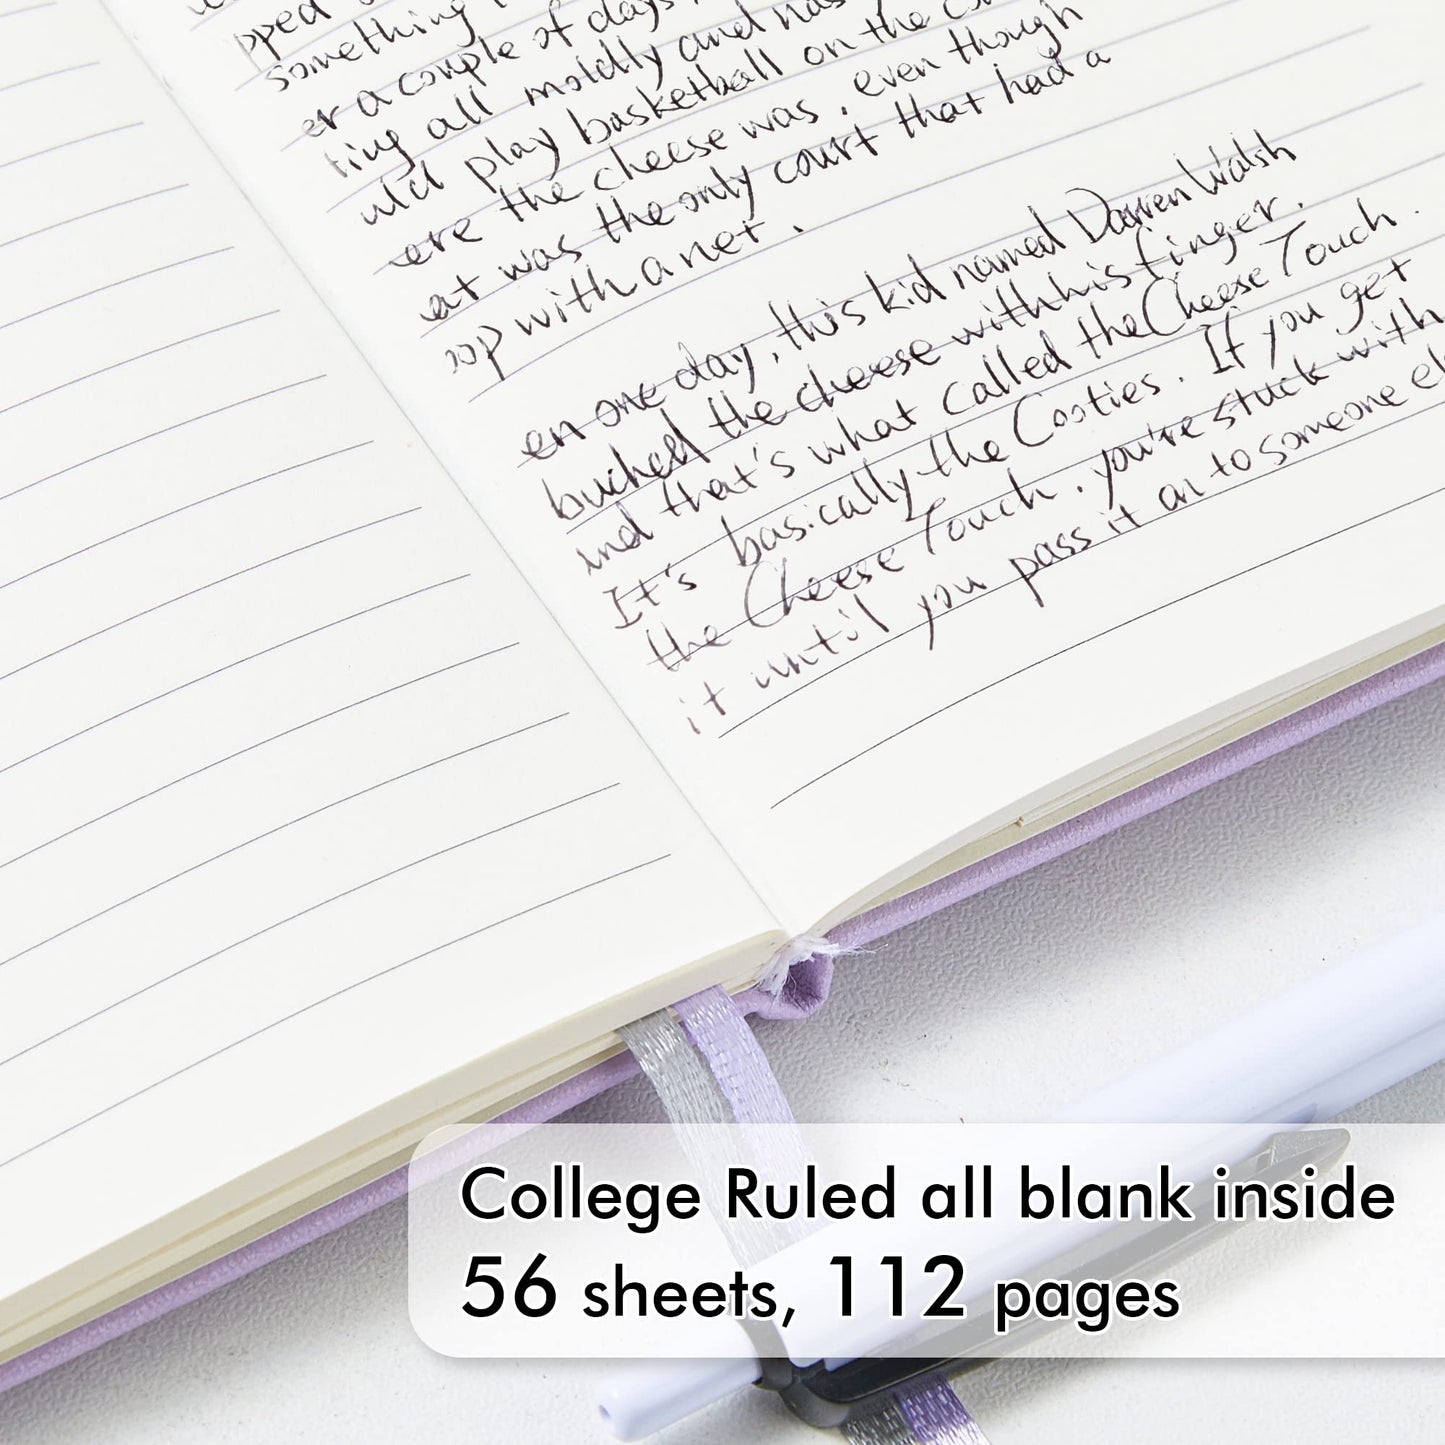 pped
something
er a couple of days,
ting all moldly and has
uld play basketball on the
ere the cheese was, even though
at was the only court that had a
oop with a net.
en one day, this kid named Darren Walsh
buched the cheese with his finger.
ind that's what called the Cheese Touch.
It's basically the Cooties. If you get
the Cheese Touch, you're stuck with
it until you pass it on to someone el
College Ruled all blank inside
56 sheets, 112 pages